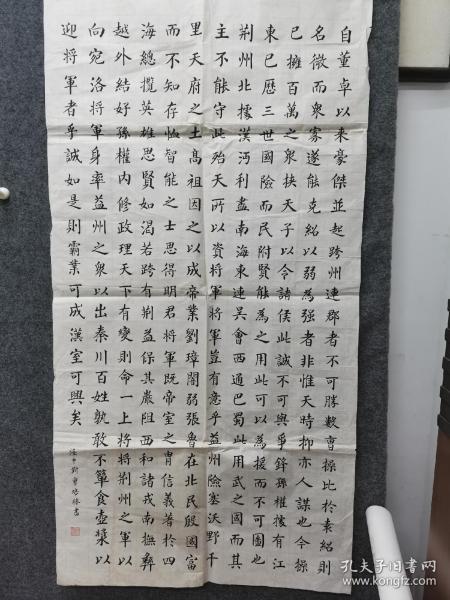 自董卓以来豪傑並起跨州連郡者不可勝數曹操比於袁紹則
名微而衆寡遂能克紹以弱為强者非惟天時抑亦人謀也今操
已擁百萬之衆挾天子以令諸侯此誠不可與爭鋒孫權據有江
東已歷三世國險而民附賢能為之用此可以為援而不可圖也
荆州北據漢沔利盡南海東連吳會西通巴蜀此用武之國而其
主不能守此殆天所以資將軍將軍豈有意乎益州險塞沃野千
里天府之土高祖因之以成帝業劉璋闇弱張魯在北民殷國富
而不知存恤智能之士思得明君將軍既帝室之胄信義著於四
海總攬英雄思賢如渴若跨有荆益保其巖阻西和諸戎南撫彝
越外結好孫權内修政理天下有變則命一上將將荆州之軍以
向宛洛將軍身率益州之衆以出秦川百姓孰敢不簞食壺漿以
迎將軍者乎誠如是則霸業可成漢室可興矣
隆中對 曹 書
孔夫子旧书网